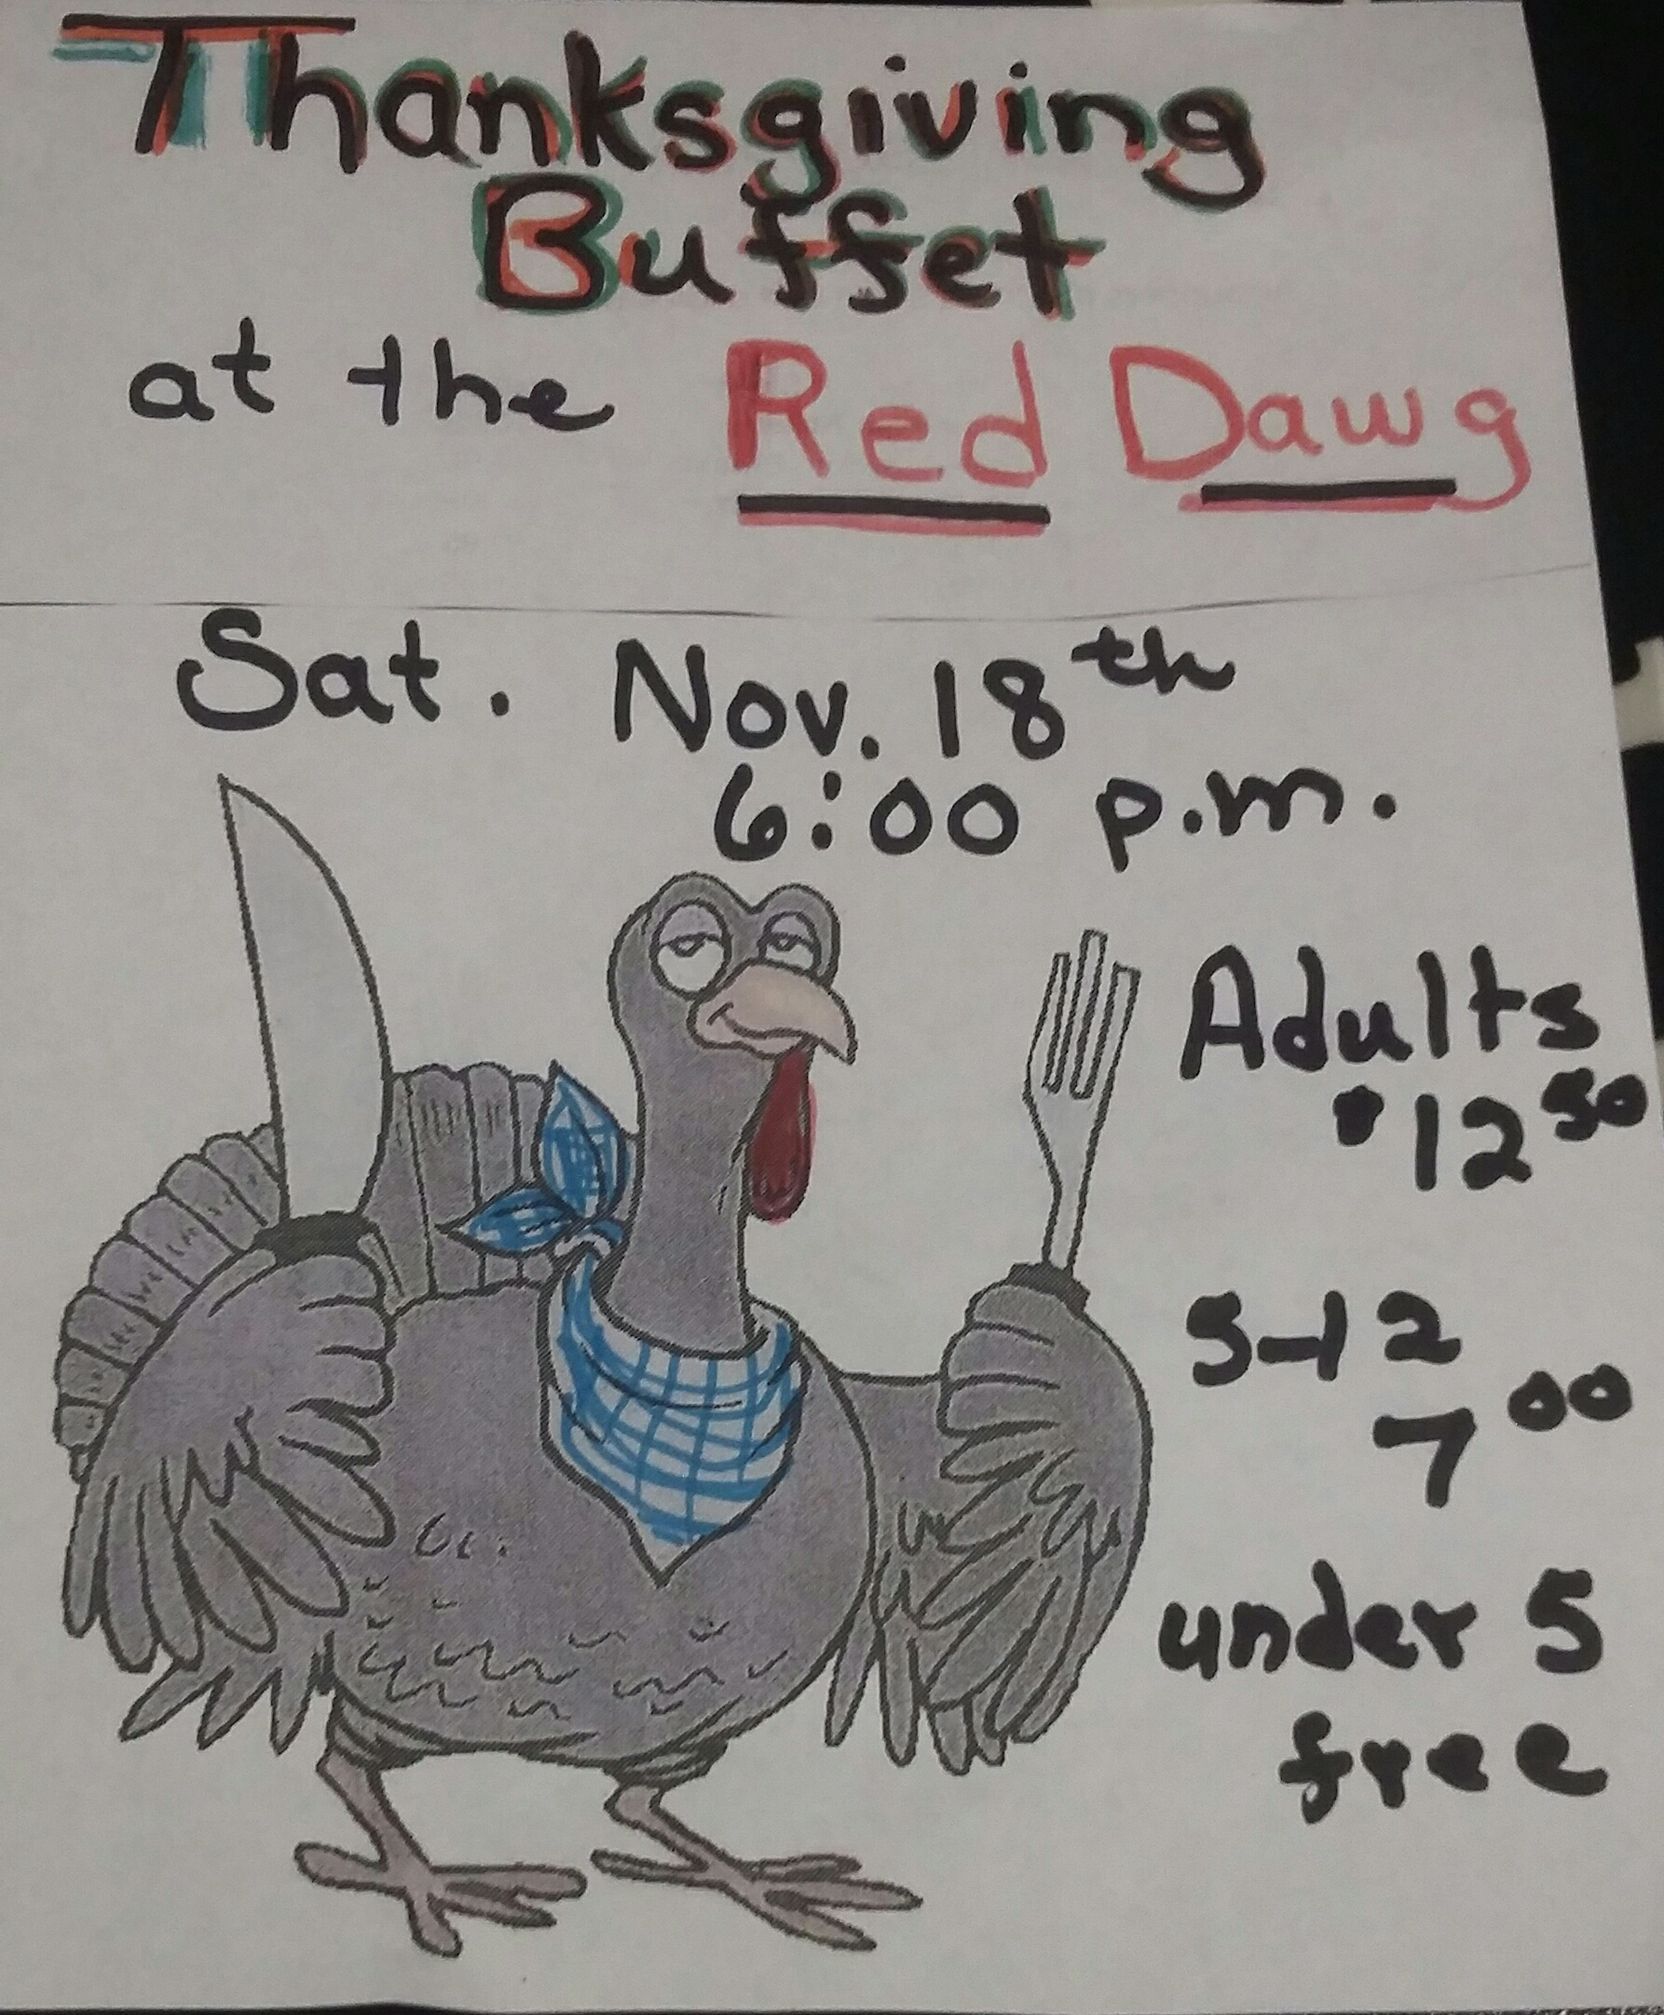 Thanksgiving
Buffet
at the Red Dawg
Sat. Nov. 18th
6:00 p.m.
Adults
$12 50
5-12
7 00
under 5
free